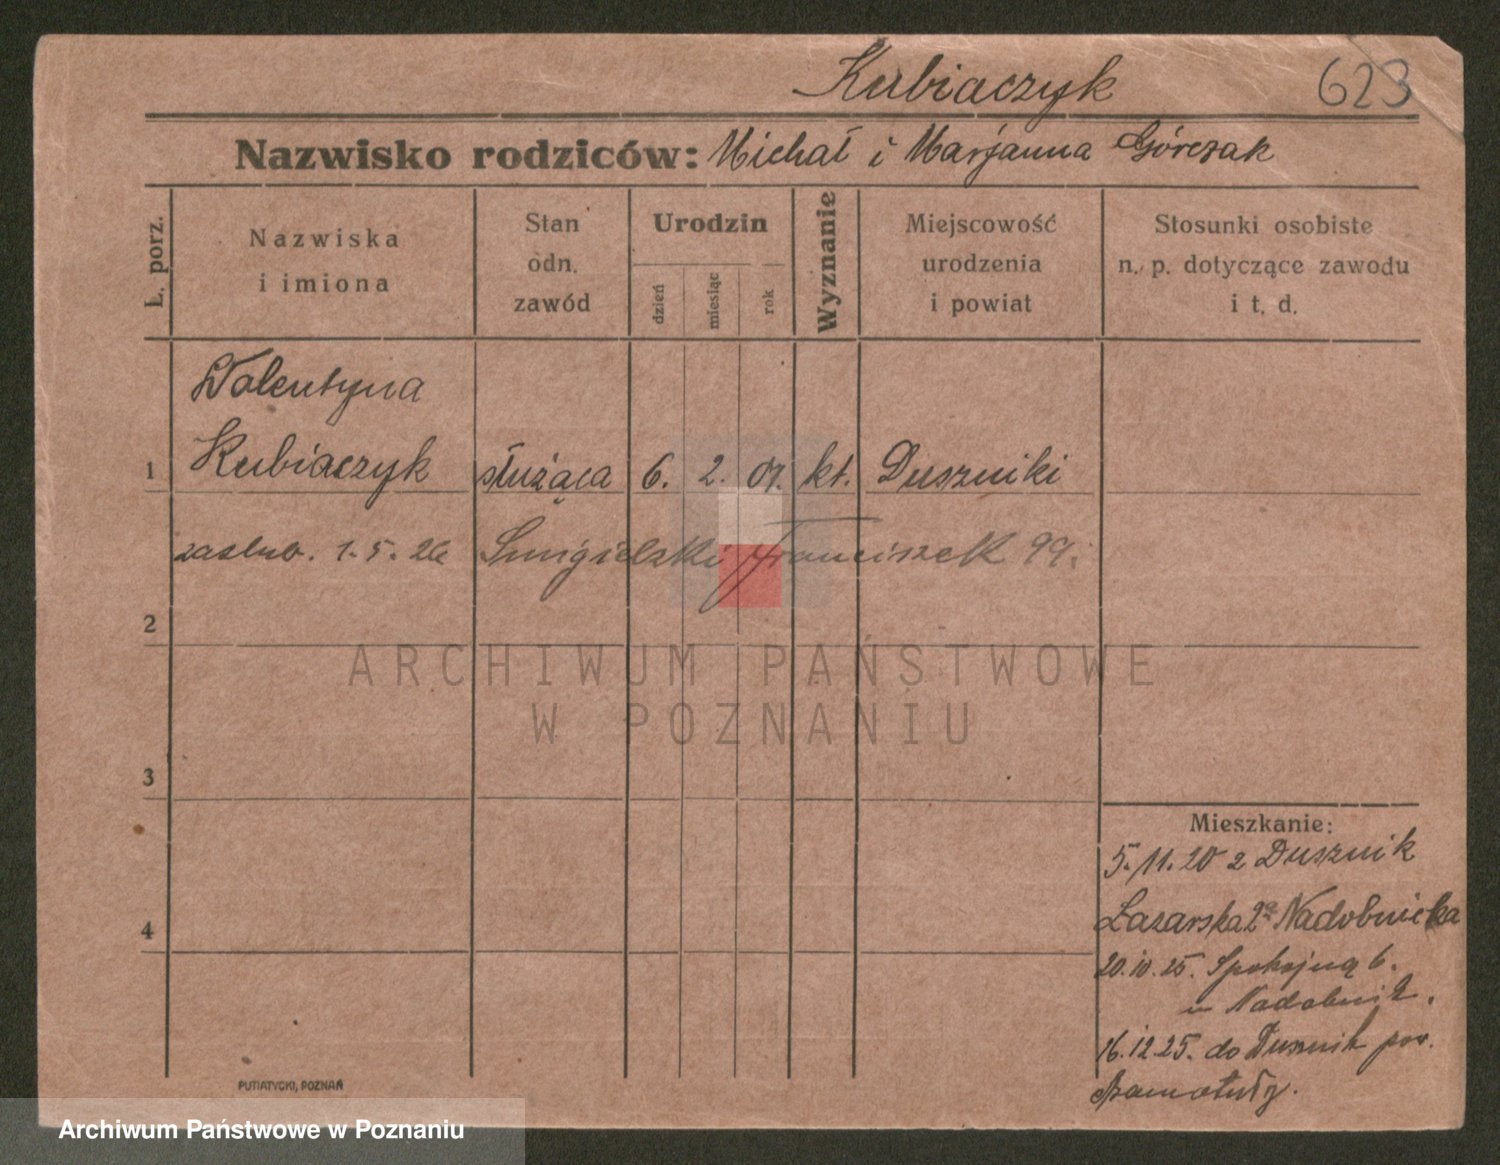 Kubiaczyk 623
Nazwisko rodziców: Michał i Marjanna Górczak
L. porz.
Nazwiska
i imiona
Stan
odn.
zawód
Urodzin
dzień
miesiąc
rok
Wyznanie
Miejscowość
urodzenia
i powiat
Stosunki osobiste
n. p. dotyczące zawodu
i t. d.
Walentyna
1 Kubiaczyk służąca 6. 2. 07. kt. Duszniki
zaslub. 1.5.26 Smigielski Franciszek 99.
2
ARCHIWUM PAŃSTWOWE
W POZNANIU
3
Mieszkanie:
5.11.20 z Dusznik
4
Łazarska 2a Nadobnicka
20.10.25. Spokojną 6.
u Nadobnik.
16.12.25. do Dusznik pow.
Szamotuły.
PUTIATYCKI, POZNAŃ
Archiwum Państwowe w Poznaniu